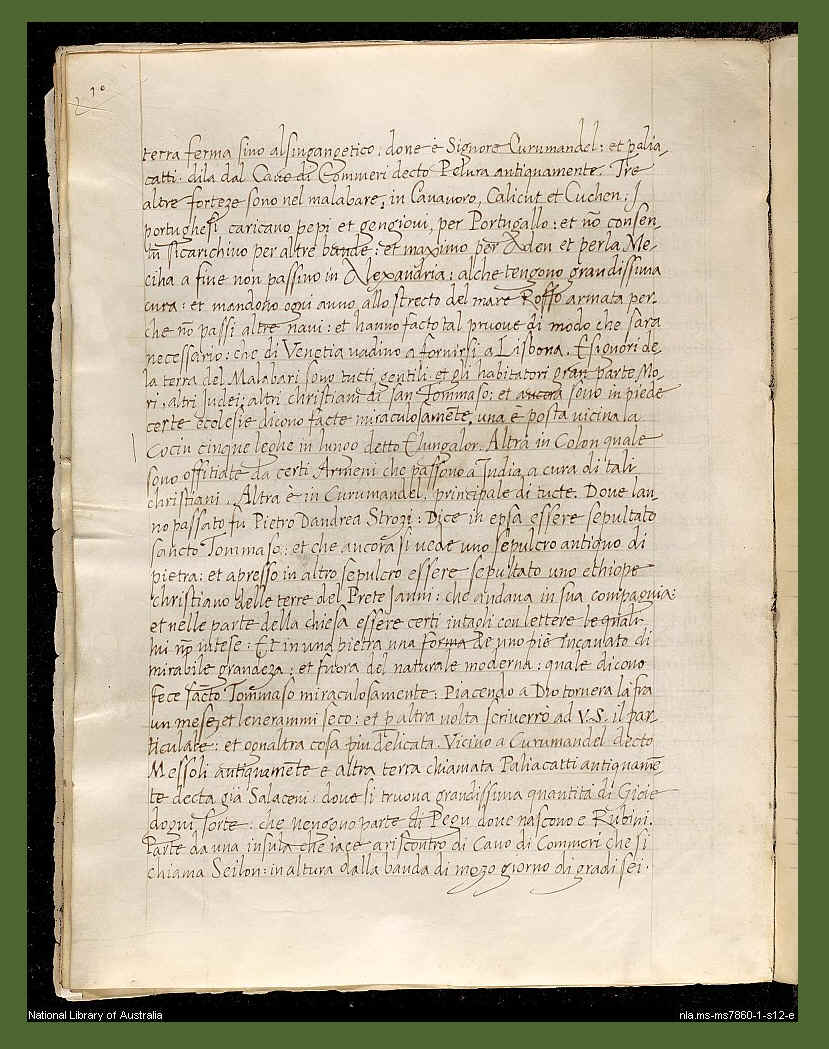 10
terra ferma sino alsingangetico: done è Signore Curumandel: et palia,
catti. dila dal Cauo di Commeri decto Pelura antiquamente. Tre
altre forteze sono nel malabare, in Cauauoro, Calicut et Cuchen: I
portughesi caricano pepi et gengioui, per Portugallo: et nõ consen,
tũ sicarichino per altre bande: et maximo per Aden et perla Me,
ciha a fine non passino in Alexandria: alche tengono grandissima
cura: et mandono ogni anno allo strecto del mare Rosso armata per,
che nõ passi altre naui: et hanno facto tal pruoue di modo che sara
necessario: che di Venetia uadino a fornirsi a Lisbona. E signori de,
la terra del Malabari sono tucti gentili. et gli habitatori gran parte Mo,
ri, altri Iudei: altri christiani di San Tommaso; et ancora sono in piede
certe ecclesie dicono facte miraculosamẽte, una è posta vicina la
Cociu cinque leghe in luogo detto Clungalor. Altra in Colon quale
sono offitiate da certi Armeni che passono a India, a cura di tali
christiani. Altra è in Curumandel, principale di tucte. Doue lan,
no passato fu Pietro Dandrea Strozi: Dice in epsa essere sepultato
sancto Tommaso: et che ancora si uede uno sepulcro antiquo di
pietra: et apresso in altro sepulcro essere sepultato uno ethiope
christiano delle terre del Prete Janni: che andaua in sua compagnia:
et nelle parte della chiesa essere certi intagli con lettere le quali
lui nõ intese: Et in una pietra una forma de uno piè incauato di
mirabile grandeza: et fuora del naturale moderna: quale dicono
fece sãcto Tommaso miraculosamente: Piacendo a Dio tornera là fra
un mese, et leuerammi seco: et p altra uolta scriuerrò ad V.S. il par,
ticulare: et ognaltra cosa piu delicata. Vicino a Curumandel decto
Messoli antiquamẽte e altra terra chiamata Paliacatti antiquamẽ,
te decta già Salaceni: doue si truoua grandissima quantità di Gioie
dogni sorte: che uengono parte di Pegu doue nascono e Rubini.
Parte da una insula che iace ariscontro di Cauo di Commeri che si
chiama Seilon: in altura dalla banda di mezo giorno di gradi sei.
National Library of Australia
nla.ms-ms7860-1-s12-e